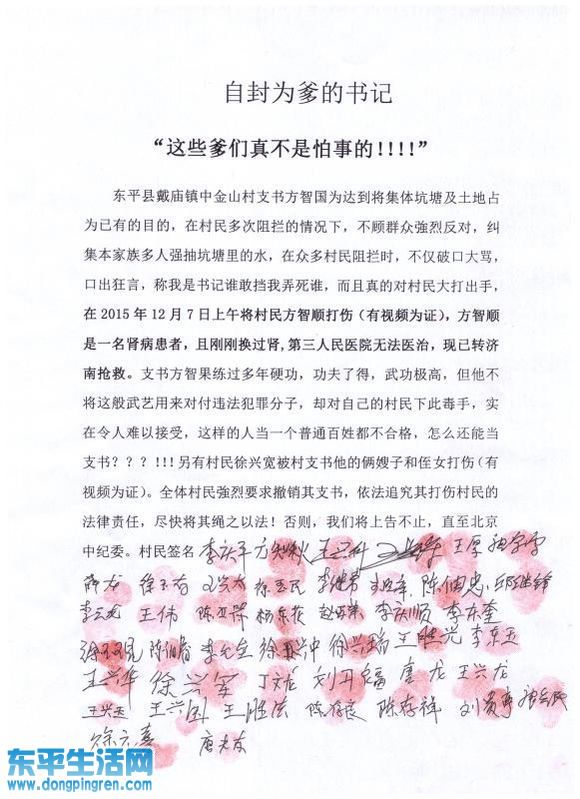 自封为爹的书记
“这些爹们真不是怕事的!!!!”
东平县戴庙镇中金山村支书方智国为达到将集体坑塘及土地占
为已有的目的，在村民多次阻拦的情况下，不顾群众強烈反对，纠
集本家族多人强抽坑塘里的水，在众多村民阻拦时，不仅破口大骂，
口出狂言，称我是书记谁敢挡我弄死谁，而且真的对村民大打出手，
在 2015 年 12 月 7 日上午将村民方智顺打伤（有视频为证），方智顺
是一名肾病患者，且刚刚换过肾,第三人民医院无法医治，现已转济
南抢救。支书方智果练过多年硬功，功夫了得，武功极高，但他不
将这般武艺用来对付违法犯罪分子，却对自己的村民下此毒手，实
在令人难以接受，这样的人当一个普通百姓都不合格，怎么还能当
支书？？？!!!另有村民徐兴宽被村支书他的俩嫂子和侄女打伤（有
视频为证）。全体村民強烈要求撤销其支书，依法追究其打伤村民的
法律责任，尽快将其绳之以法！否则，我们将上告不止，直至北京
中纪委。村民签名 李庆平
陈伯忠
李云龙 王伟 李庆顺 李东奎
徐兴瑞 王胜光 李东玉
王兴华 徐兴军 丁文龙 刘丑福 唐龙 王兴龙
王兴玉 王兴国 王胜法 陈存良 陈存祥 刘贵事
徐元喜 唐光东
东平生活网
www.dongpingren.com